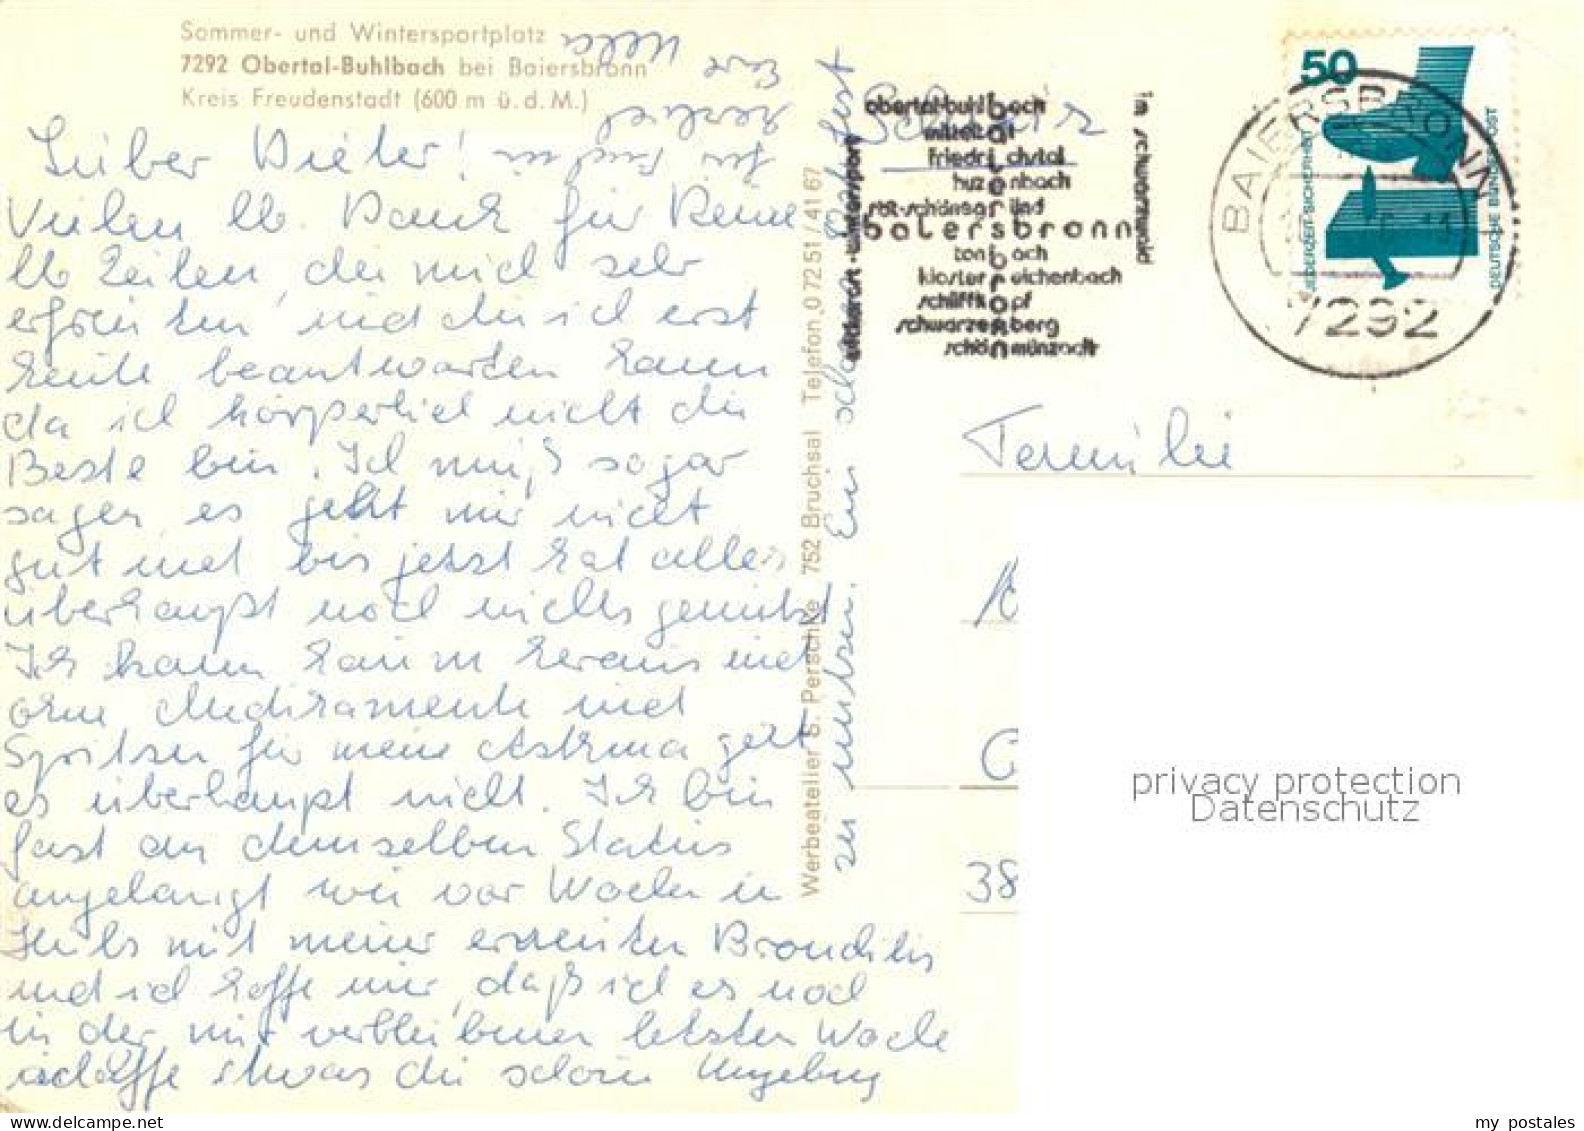 Sommer- und Wintersportplatz
7292 Obertal-Buhlbach bei Baiersbronn
Kreis Freudenstadt (600 m ü. d. M.)
Lieber Dieter!
Vielen lb. Dank für Deine
lb Zeilen, die mich sehr
erfreuten und die ich erst
heute beantworten kann
da ich körperlich nicht die
Beste bin. Ich muß sogar
sagen es geht mir nicht
gut und bis jetzt hat alles
überhaupt noch nichts genützt
Ich kann kaum heraus und
ohne Medikamente und
Spritzen für meine Asthma geht
es überhaupt nicht. Ich bin
fast an demselben Status
angelangt wie vor Wochen in
mit meiner erneuten Bronchitis
und ich hoffe nur, daß ich es noch
in der mir verbleibenen letzten Woche
schaffe etwas die schöne Umgebung
zu nutzen. Ein schönes
Eure
für
Werbeatelier G. Perschke 752 Bruchsal Telefon 0 72 51 / 41 67
obertal-buhlbach
mitteltal
friedrichstal
huzenbach
röt-schönegründ
baiersbronn
tonbach
kloster reichenbach
schliffkopf
schwarzenberg
schönmünzach
luftkurort · wintersport
im schwarzwald
50
JEDERZEIT SICHERHEIT
DEUTSCHE BUNDESPOST
BAIERSBRONN
7292
Familie
38
privacy protection
Datenschutz
my postales